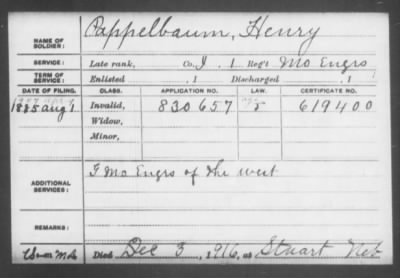 NAME OF SOLDIER: Pappelbaum, Henry
SERVICE: Late rank, Co. I. 1 Reg't Mo Engrs
TERM OF SERVICE: Enlisted , 1 Discharged , 1
DATE OF FILING. CLASS. APPLICATION NO. LAW. CERTIFICATE NO.
1885 Aug 1 Invalid, 830657 619400
Widow,
Minor,
ADDITIONAL SERVICES: I Mo Engrs of the west
REMARKS:
Died Dec 3, 1916, at Stuart Neb